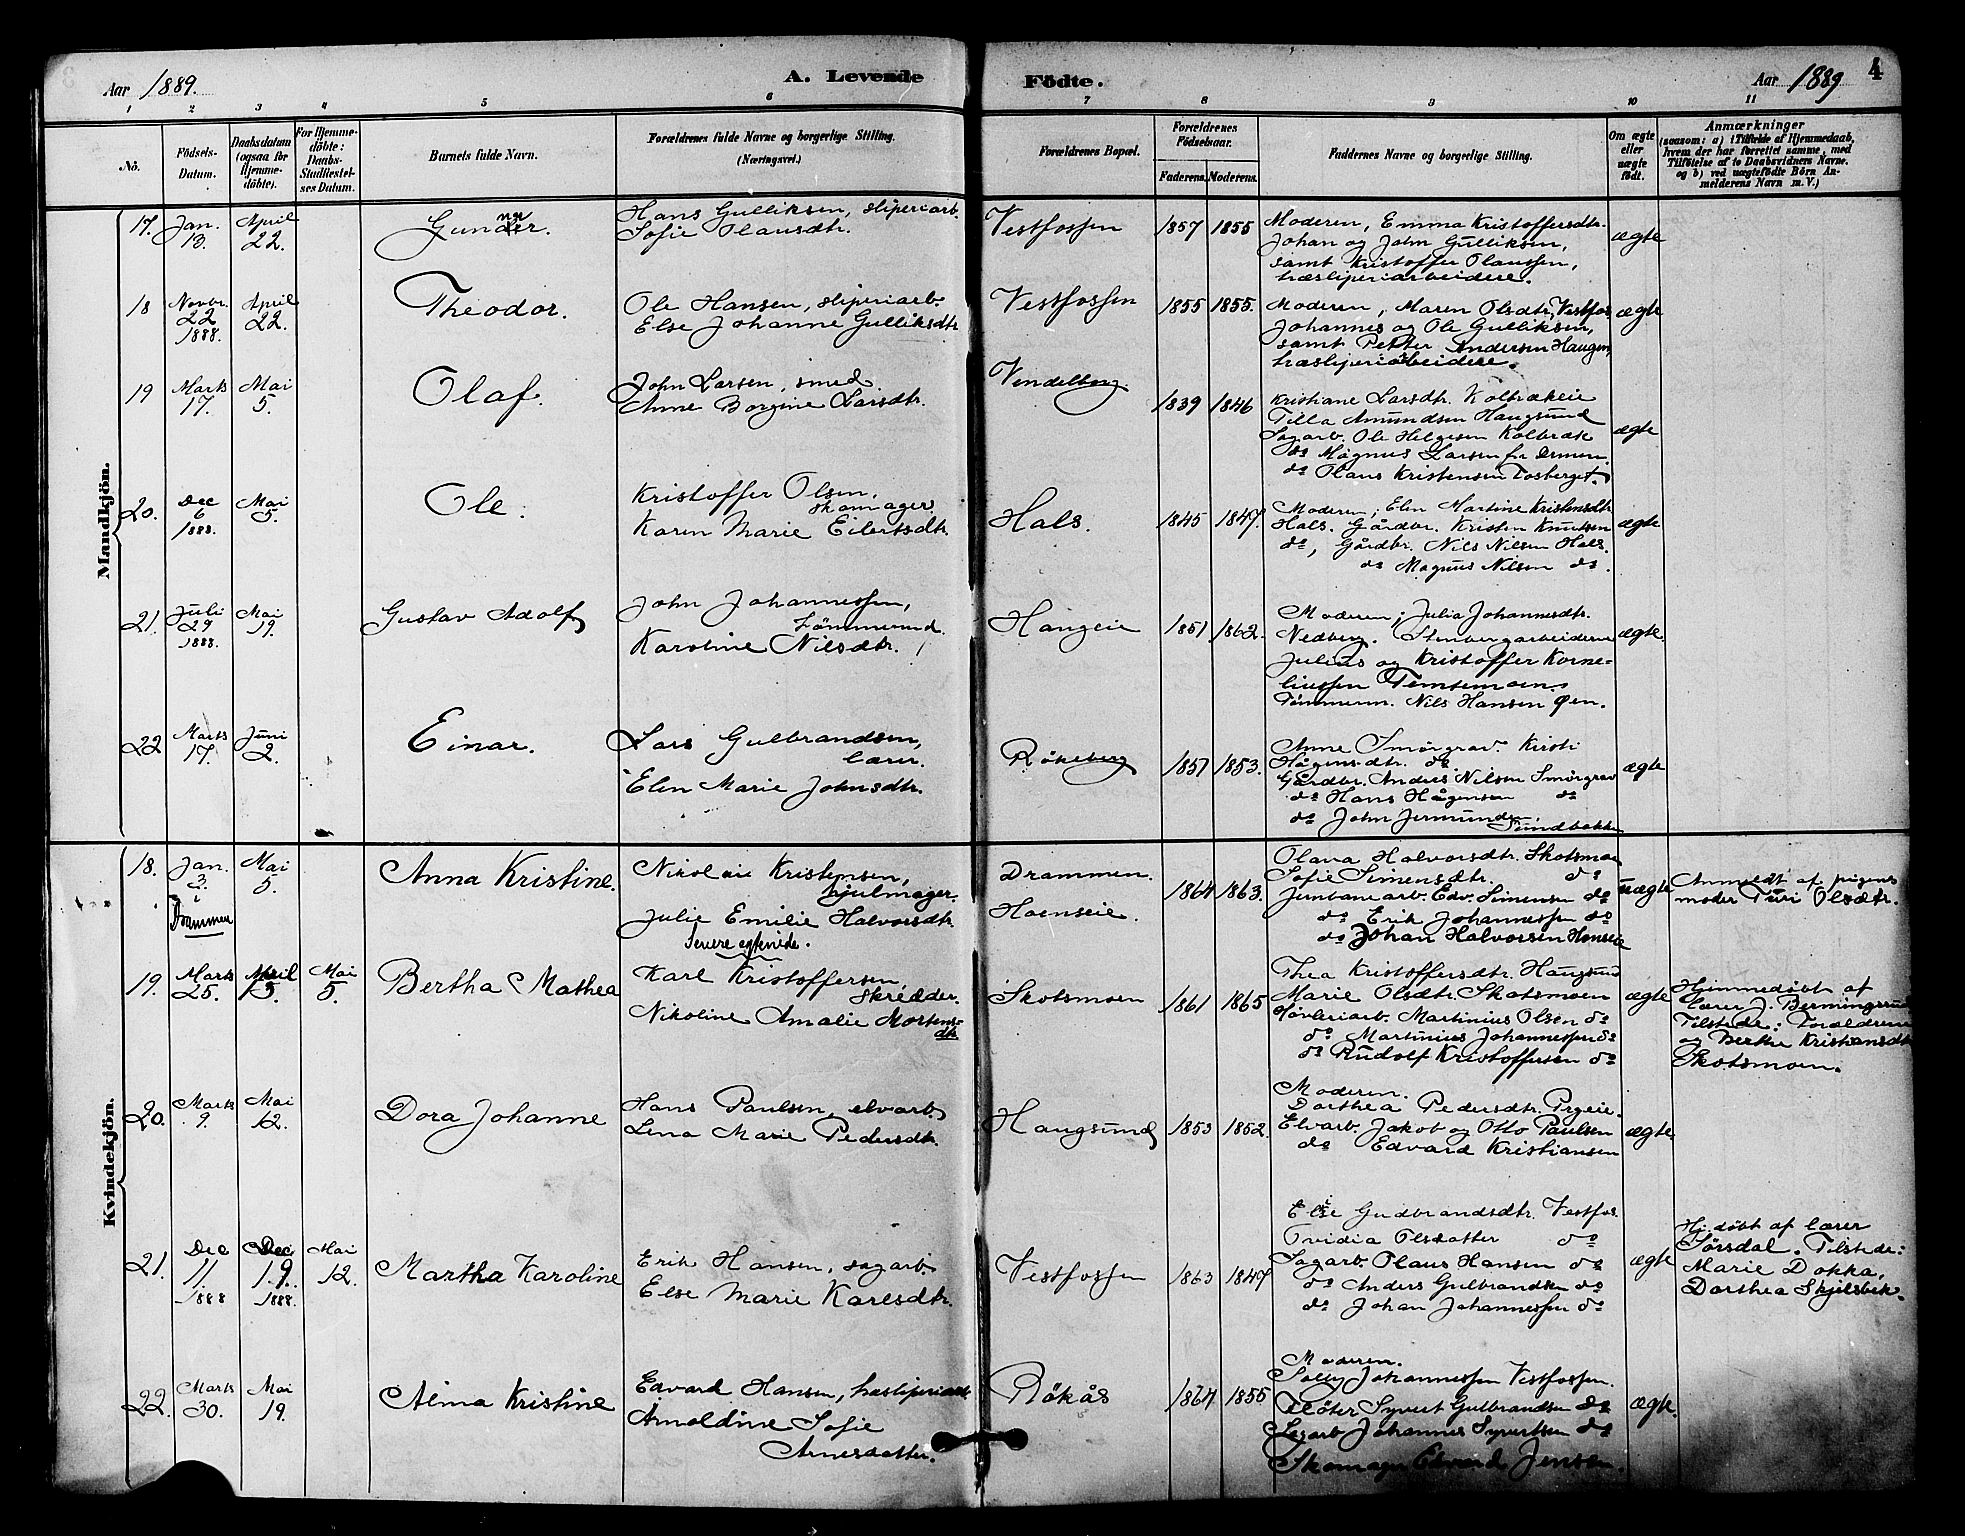 Aar 1889.
A. Levende
Födte.
Aar 1889
4
1 2 3 4 5 6 7 8 9 10 11
No.
Födsels-Datum.
Daabsdatum (ogsaa for Hjemme-döbte).
For Hjemme-döbte: Daabs-Stadfæstel-ses Datum.
Barnets fulde Navn.
Forældrenes fulde Navne og borgerlige Stilling.
(Næringsvei.)
Forældrenes Bopæl.
Forældrenes Födselsaar.
Faderens. Moderens.
Faddernes Navne og borgerlige Stilling.
Om ægte eller uægte födt.
Anmærkninger
(saasom: a) i Tilfælde af Hjemmedaab,
hvem der har forrettet samme, med
Tilföielse af to Daabsvidners Navne.
og b) ved uægtefödte Börn An-
melderens Navn m. V.)
Mandkjön.
17. Jan. 13. April 22.
Gunder
Hans Gulliksen, sliperiarb.
Sofie Olausdtr.
Vestfossen 1857 1855
Moderen, Emma Kristoffersdtr.
Johan og John Gulliksen,
samt Kristoffer Olaussen,
træsliperiarbeidere.
ægte
18 Novbr. 22 1888. April 22.
Theodor.
Ole Hansen, sliperiarb.
Else Johanne Gulliksdtr.
Vestfossen 1855 1855.
Moderen, Maren Olsdtr, Vestfos
Johannes og Ole Gulliksen,
samt Petter Andersen Haugen,
træsliperiarbeidere.
ægte
19 Marts 17. Mai 5.
Olaf.
John Larsen, smed.
Anne Borgine Larsdtr.
Vendelborg. 1839 1846
Kristiane Larsdtr. Kolbrækeie
Tilla Amundsen Haugsund
Sagarb. Ole Helgesen Kolbræk
do Magnus Larsen fra Drmen.
do Olaus Kristensen Tosberget.
ægte
20. Dec 6 1888. Mai 5.
Ole.
Kristoffer Olsen,
skomager
Karen Marie Eilertsdtr.
Hals. 1845 1847.
Moderen, Elen Martine Kristensdtr
Hals. Gårdbr. Kristen Knutsen
do, Gårdbr. Nils Nilsen Hals.
do Magnus Nilsen do.
ægte
21. Juli 29 1888. Mai 19.
Gustav Adolf
John Johannessen,
tömmermd.
Karoline Nilsdtr.
Haugeie 1851 1862.
Moderen, Julia Johannesdtr.
Nedberg. Stenbergarbeiderne
Julius og Kristoffer Korne-
liussen Temsemoen.
Tömmerm. Nils Hansen Øen.
ægte.
22 Marts 17. Juni 2.
Einar.
Lars Gulbrandsen,
lærer.
Elen Marie Johnsdtr.
Røkeberg 1851 1853.
Anne Smörgrav. Kristi
Hågensdtr. do
Gårdbr. Anders Nilsen Smörgrav
do Hans Hågensen do
do John Jermundsen.
Sundbakken
ægte
Kvindekjön.
18. Jan. 3. i Drammen Mai 5.
Anna Kristine.
Nikolaie Kristensen,
hjulmager.
Julie Emilie Halvorsdtr.
Senere egteviede.
Drammen.
Hoenseie. 1864 1863.
Olava Halvorsdtr. Skotsmoen
Sofie Simensdtr. do
Jernbanearb. Edv. Simensen do
do Erik Johannessen do
do Johan Halvorsen Hønseie
uægte
Anmeldt af pigens
moder Turi Olsdtr.
19. Marts 25. April 3. Mai 5.
Bertha Mathea
Karl Kristoffersen,
Skredder.
Nikoline Amalie Mortens-
dtr.
Skotsmoen 1861 1865
Thea Kristoffersdtr. Haugsund
Marie Olsdtr. Skotsmoen
Høvleriarb. Martinius Olsen do
do Martinius Johannessen do
do Rudolf Kristoffersen do
ægte
Hjemmedøbt af
lærer J. Bermingrud
Tilstede: Forældrene
og Berthe Kristiansdtr
Skotsmoen.
20. Marts 9. Mai 12.
Dora Johanne
Hans Paulsen, elvarb.
Lena Marie Pedersdtr.
Haugsund 1853 1852.
Moderen.
Dorthea Pedersdtr. Prgeie.
Elvarb. Jakob og Otto Paulsen
do Edvard Kristiansen
ægte
21. Dec 11. 1888 Dec 19. 1888. Mai 12.
Martha Karoline
Erik Hansen, sagarb.
Else Marie Karlsdtr.
Vestfossen 1863 1847
Else Gudbrandsdtr. Vestfos.
Ovidia Olsdatter do
Sagarb. Olaus Hansen do
do Anders Gulbrandsen do
do Johan Johannessen do
ægte
Hj.döbt af lærer
Sørsdal. Tilstede:
Marie Dokka,
Dorthea Skjelsbek.
22. Marts 30. Mai 19.
Alma Kristine
Edvard Hansen, træsliperiarb
Arnoldine Sofie
Arnesdatter.
Røkås 1864 1855
Moderen.
Solly Johannessen Vestfossen.
Fløter Syvert Gulbrandsen do
Sagarb Johannes Syvertsen do
Skomager Edvard Jensen.
ægte.